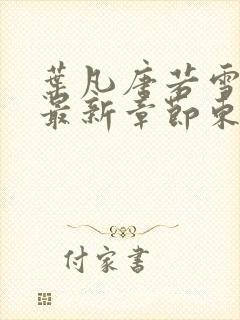 葉凡唐若雪
最新章節東
付家書